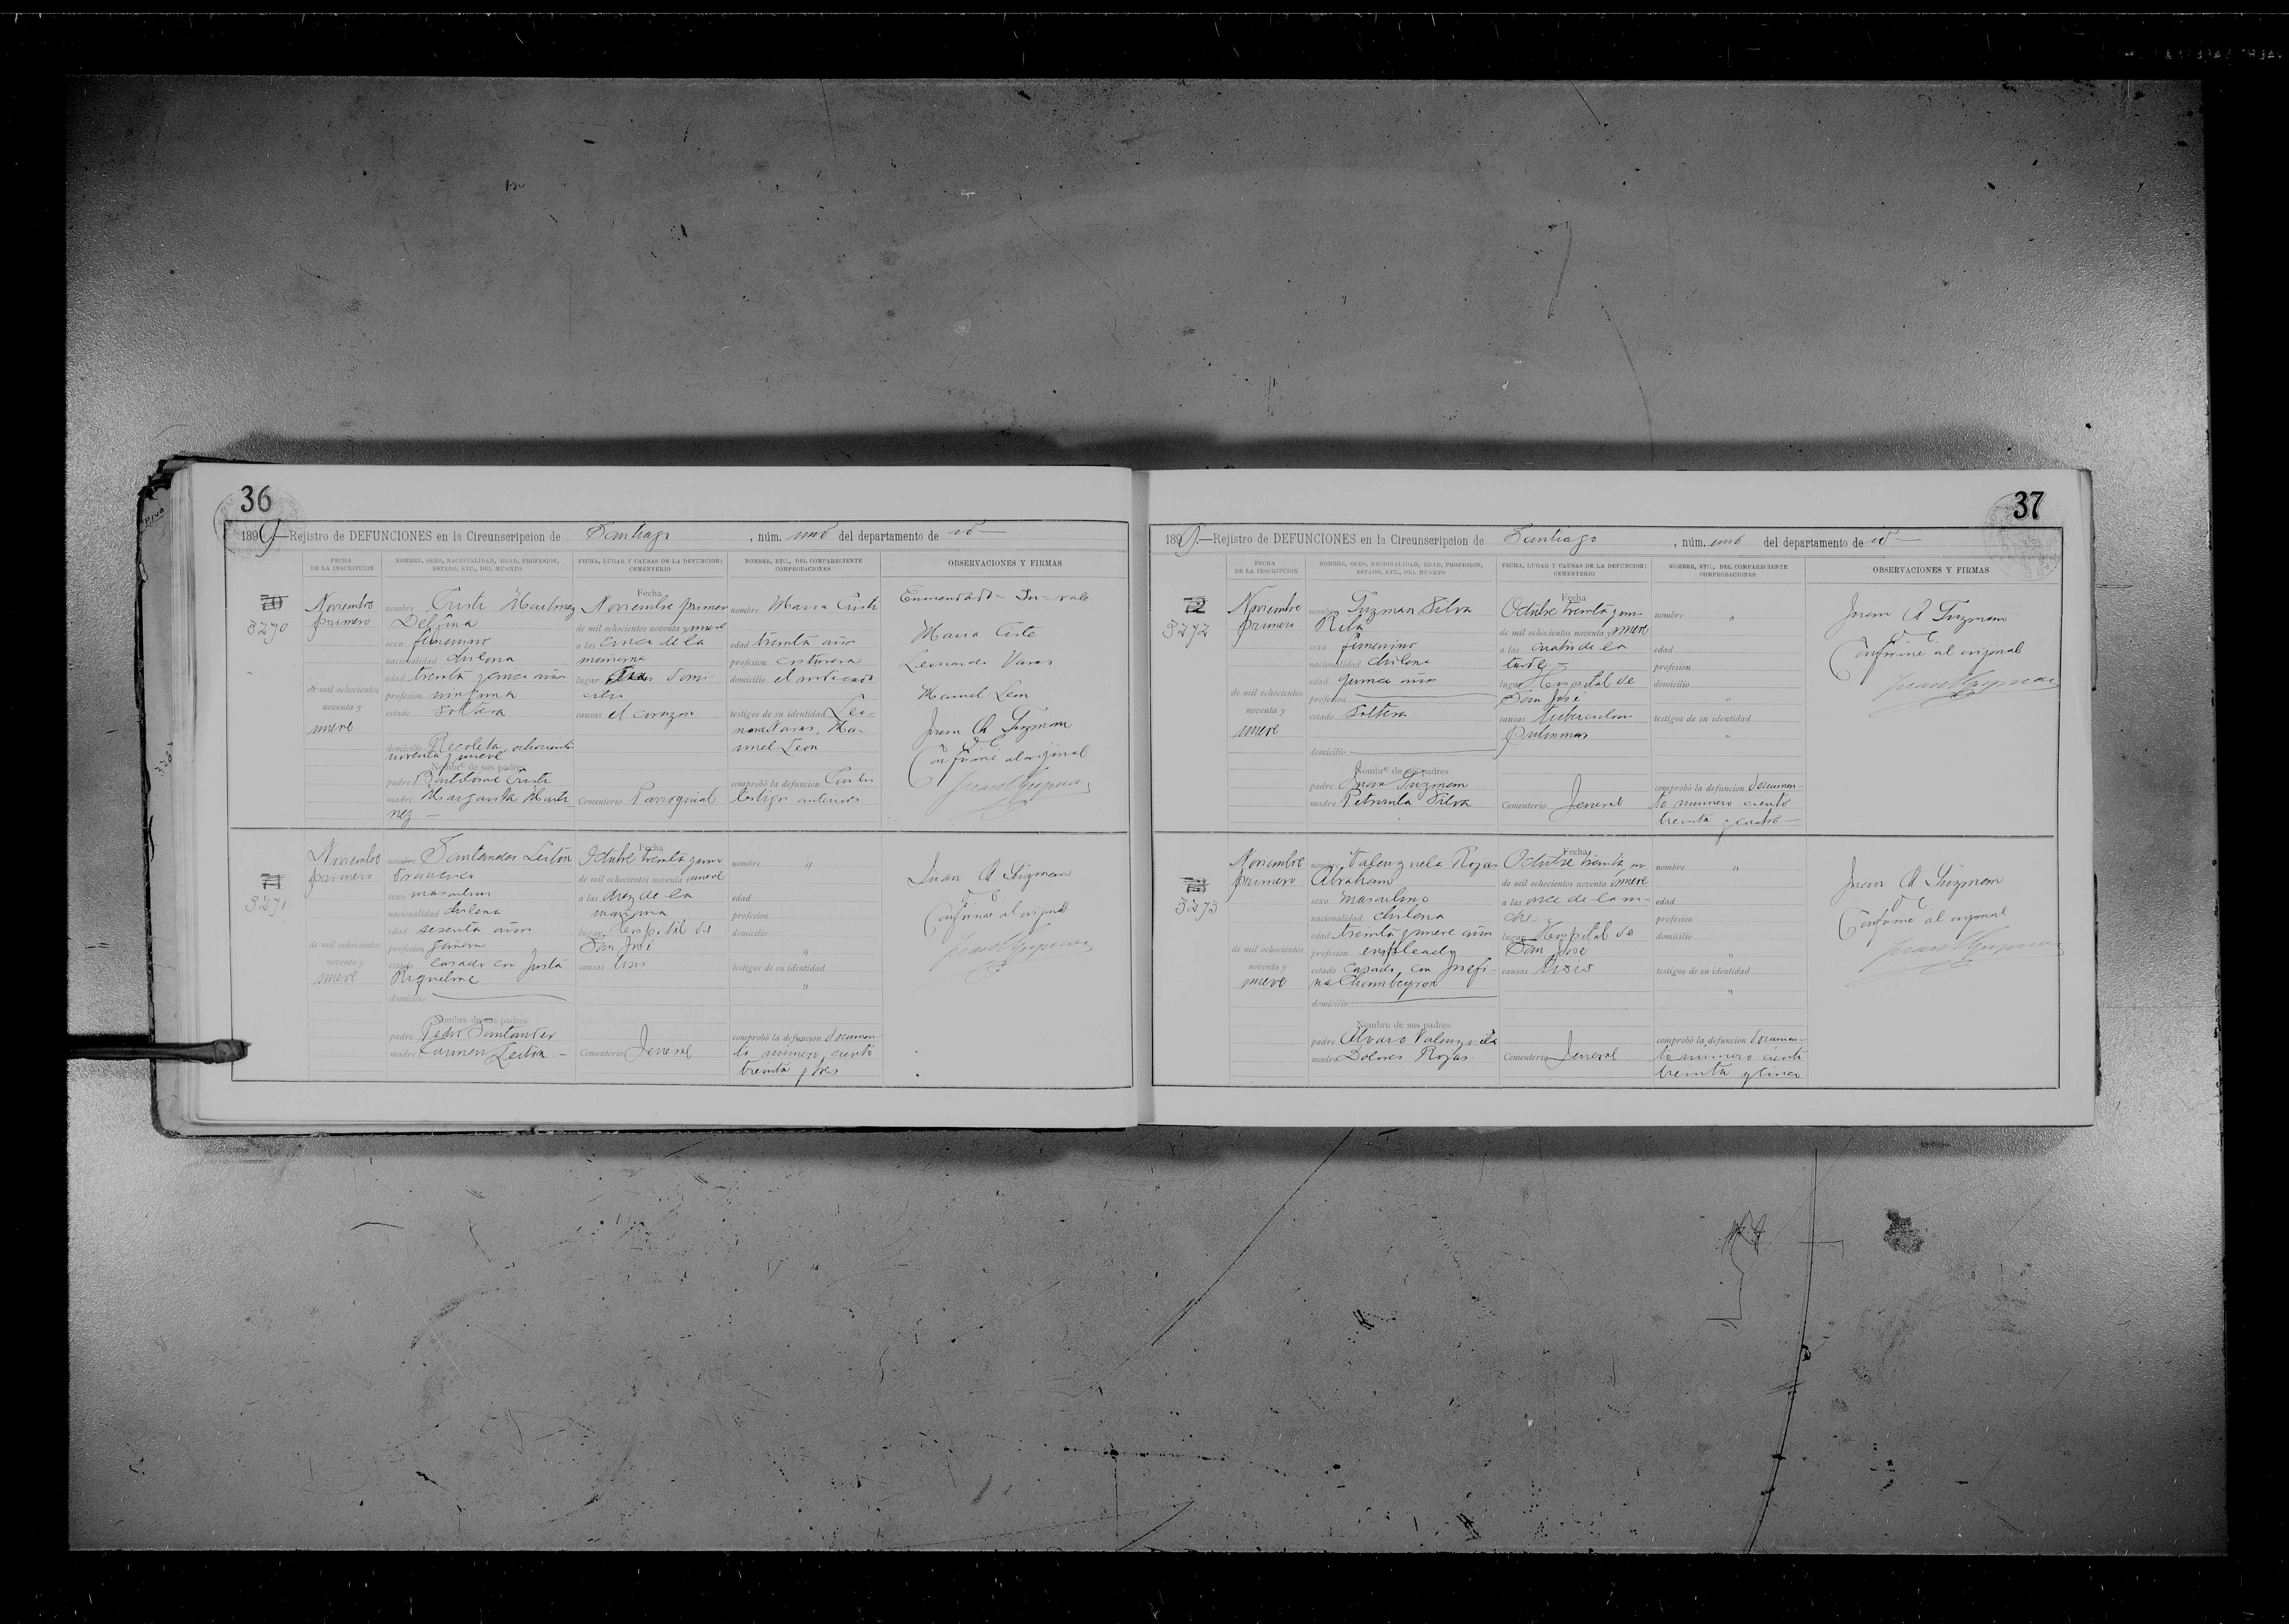 36
1899.—Rejistro de DEFUNCIONES en la Circunscripcion de Santiago, núm. uno del departamento de id—
FECHA DE LA INSCRIPCION
NOMBRE, SEXO, NACIONALIDAD, EDAD, PROFESION, ESTADO, ETC., DEL MUERTO
FECHA, LUGAR Y CAUSAS DE LA DEFUNCION: CEMENTERIO
NOMBRE, ETC., DEL COMPARECIENTE COMPROBACIONES
OBSERVACIONES Y FIRMAS
70
3270
Noviembre
primero
de mil ochocientos
noventa y
nueve
nombre Cristi Martinez
Delfina
sexo femenino
nacionalidad chilena
edad treinta y cinco años
profesion ninguna
estado soltera
domicilio Recoleta ochocientos
noventa y nueve
Nombre de sus padres
padre Bartolomé Cristi
madre Margarita Marti
nez —
Fecha
Noviembre primero
de mil ochocientos noventa y nueve
a las cinco de la
mañana
lugar su domi-
cilio
causas el corazon
Cementerio Parroquial
nombre Maria Cristi
edad treinta años
profesion costurera
domicilio el indicado
testigos de su identidad Leo-
nardo Varas, Ma-
nuel Leon
comprobó la defuncion Con los
testigos anteriores
Enmendado - Su - vale
Maria Criste
Leonardo Varas
Manuel Leon
Juan A Guzman
O. C.
Conforme al orijinal
71
3271
Noviembre
primero
de mil ochocientos
noventa y
nueve
nombre Santander Leiton
Francisco
sexo masculino
nacionalidad chilena
edad sesenta años
profesion gañan
estado casado con Justa
Riquelme
domicilio
Nombre de sus padres
padre Pedro Santander
madre Carmen Leiton —
Fecha
Octubre treinta y uno
de mil ochocientos noventa y nueve
a las diez de la
mañana
lugar Hospital de
San José
causas tisis
Cementerio Jeneral
nombre "
edad
profesion
domicilio "
testigos de su identidad
"
comprobó la defuncion documen-
to numero ciento
treinta y tres
Juan A Guzman
O. C.
Conforme al orijinal
37
1899.—Rejistro de DEFUNCIONES en la Circunscripcion de Santiago, núm. uno del departamento de id—
FECHA DE LA INSCRIPCION
NOMBRE, SEXO, NACIONALIDAD, EDAD, PROFESION, ESTADO, ETC., DEL MUERTO
FECHA, LUGAR Y CAUSAS DE LA DEFUNCION: CEMENTERIO
NOMBRE, ETC., DEL COMPARECIENTE COMPROBACIONES
OBSERVACIONES Y FIRMAS
72
3272
Noviembre
primero
de mil ochocientos
noventa y
nueve
nombre Guzman Silva
Rita
sexo femenino
nacionalidad chilena
edad quince años
profesion
estado soltera
domicilio
Nombre de sus padres
padre Juan Guzman
madre Petronila Silva
Fecha
Octubre treinta y uno
de mil ochocientos noventa y nueve
a las cuatro de la
tarde —
lugar Hospital de
San José
causas tuberculosis
pulmonar
Cementerio Jeneral
nombre "
edad
profesion
domicilio
"
testigos de su identidad
"
comprobó la defuncion documen-
to numero ciento
treinta y cuatro —
Juan A Guzman
O. C.
Conforme al orijinal
73
3273
Noviembre
primero
de mil ochocientos
noventa y
nueve
nombre Valenzuela Rojas
Abraham
sexo masculino
nacionalidad chilena
edad treinta y nueve años
profesion empleado
estado casado con Josefi-
na Chambeyron
domicilio
Nombre de sus padres
padre Alvaro Valenzuela
madre Dolores Rojas
Fecha
Octubre treinta y un
de mil ochocientos noventa y nueve
a las once de la no-
che
lugar Hospital de
San José
causas tisis
Cementerio Jeneral
nombre "
edad
profesion
domicilio
"
testigos de su identidad
"
comprobó la defuncion documen-
to numero ciento
treinta y cinco
Juan A Guzman
O. C.
Conforme al orijinal